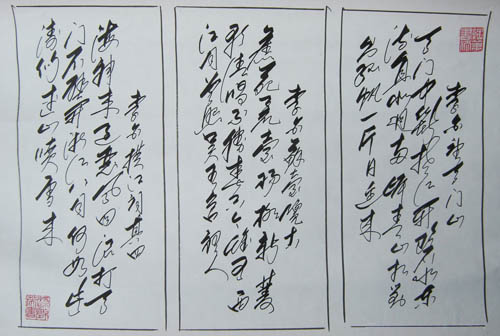 李白望天门山
天门中断楚江开碧水东
流至此回两岸青山相对
出孤帆一片日边来
李白苏台览古
旧苑荒台杨柳新菱
歌清唱不胜春只今惟有西
江月曾照吴王宫里人
李白横江词其四
海神来过恶风回浪打天
门石壁开浙江八月何如此
涛似连山喷雪来